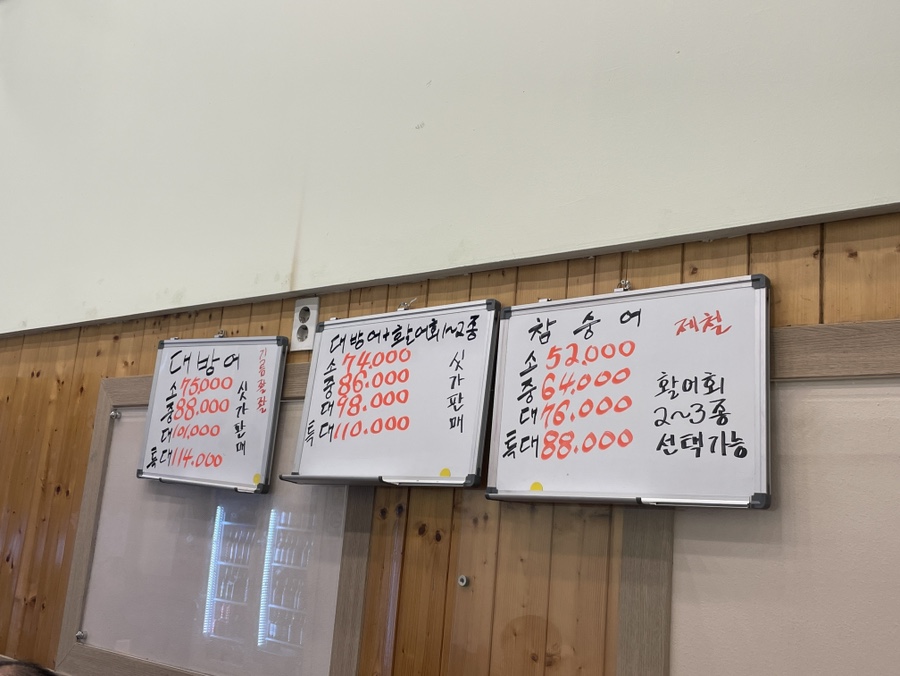 대방어
기름 좔좔
소 75,000
중 88,000
대 101,000
특대 114,000
싯가판매
대방어+활어회 1~2종
소 74.000
중 86.000
대 98.000
특대 110.000
싯가판매
참숭어
제철
소 52,000
중 64,000
대 76.000
특대 88.000
활어회
2~3종
선택가능